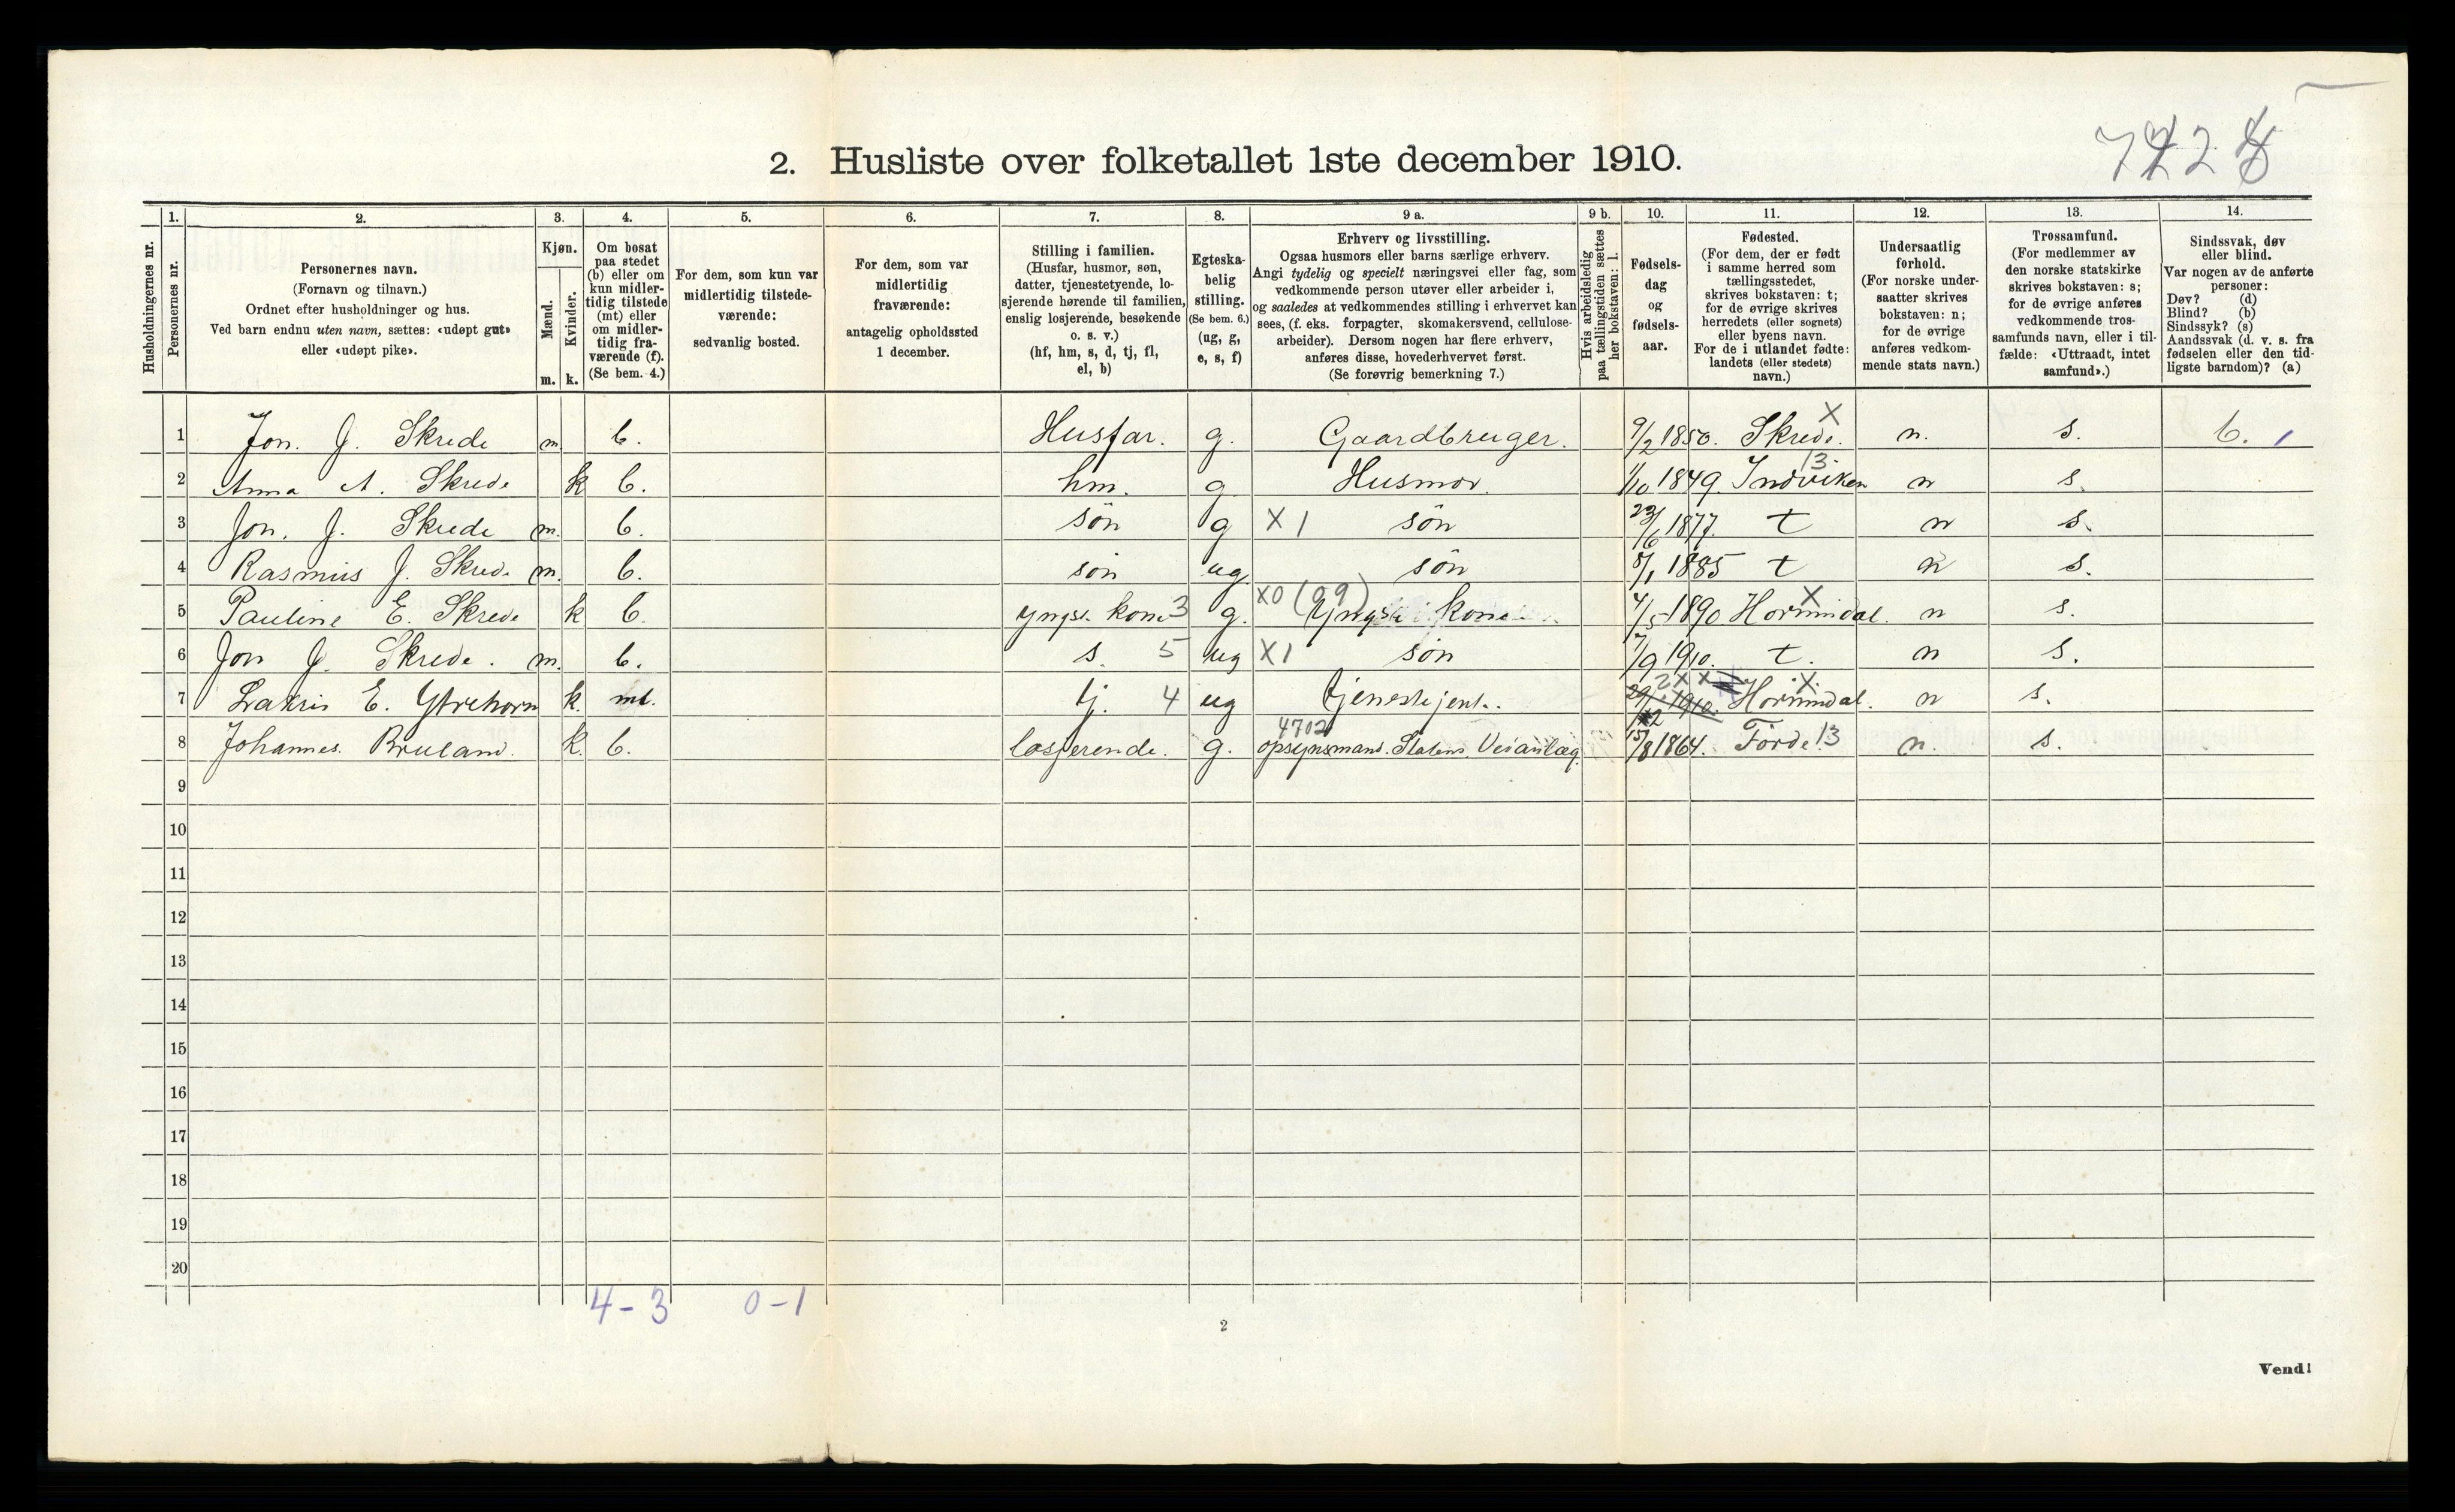 7428
2. Husliste over folketallet 1ste december 1910.
1. 2. 3. 4. 5. 6. 7. 8. 9 a. 9 b. 10. 11. 12. 13. 14.
Husholdningernes nr.
Personernes nr.
Personernes navn.
(Fornavn og tilnavn.)
Ordnet efter husholdninger og hus.
Ved barn endnu uten navn, sættes: «udøpt gut»
eller «udøpt pike».
Kjøn.
Mænd.
Kvinder.
m. k.
Om bosat
paa stedet
(b) eller om
kun midler-
tidig tilstede
(mt) eller
om midler-
tidig fra-
værende (f).
(Se bem. 4.)
For dem, som kun var
midlertidig tilstede-
værende:
sedvanlig bosted.
For dem, som var
midlertidig
fraværende:
antagelig opholdssted
1 december.
Stilling i familien.
(Husfar, husmor, søn,
datter, tjenestetyende, lo-
sjerende hørende til familien,
enslig losjerende, besøkende
o. s. v.)
(hf, hm, s, d, tj, fl,
el, b)
Egteska-
belig
stilling.
(Se bem. 6.)
(ug, g,
e, s, f)
Erhverv og livsstilling.
Ogsaa husmors eller barns særlige erhverv.
Angi tydelig og specielt næringsvei eller fag, som
vedkommende person utøver eller arbeider i,
og saaledes at vedkommendes stilling i erhvervet kan
sees, (f. eks. forpagter, skomakersvend, cellulose-
arbeider). Dersom nogen har flere erhverv,
anføres disse, hovederhvervet først.
(Se forøvrig bemerkning 7.)
Hvis arbeidsledig
paa tællingstiden sættes
her bokstaven: l.
Fødsels-
dag
og
fødsels-
aar.
Fødested.
(For dem, der er født
i samme herred som
tællingsstedet,
skrives bokstaven: t;
for de øvrige skrives
herredets (eller sognets)
eller byens navn.
For de i utlandet fødte:
landets (eller stedets)
navn.)
Undersaatlig
forhold.
(For norske under-
saatter skrives
bokstaven: n;
for de øvrige
anføres vedkom-
mende stats navn.)
Trossamfund.
(For medlemmer av
den norske statskirke
skrives bokstaven: s;
for de øvrige anføres
vedkommende tros-
samfunds navn, eller i til-
fælde: «Uttraadt, intet
samfund».)
Sindssvak, døv
eller blind.
Var nogen av de anførte
personer:
Døv? (d)
Blind? (b)
Sindssyk? (s)
Aandssvak (d. v. s. fra
fødselen eller den tid-
ligste barndom)? (a)
1 Jon. J. Skrede m. b. Husfar. g. Gaardbruger. 9/2 1850. Skrede. X n. s. b. 1
2 Anna A. Skrede k b. hm. g Husmor. 1/10 1849. Indviken 13 n s.
3 Jon. J. Skrede m. b. sön g X 1 sön 23/6 1877. t n s.
4 Rasmus J. Skrede m. b. sön ug. sön 8/1 1885 t n s.
5 Pauline E. Skrede k b. yngst. kone 3 g. X0 (09) Yngste kone 4/5 1890. Hornindal. X n s.
6 Jon J. Skrede. m. b. s. 5 ug X1 sön 7/9 1910. t. n s.
7 E. Ytrehorn k. mt. tj. 4 ug tjenestejente. 1910. Hornindal. X n s.
8 Johannes. Bruland. k. b. losjerende. g. 4702 opsynsmand. Statens Veianlæg. 15/8 1864. Förde 13 n. s.
9
10
11
12
13
14
15
16
17
18
19
20
4-3 0-1
2
Vend!